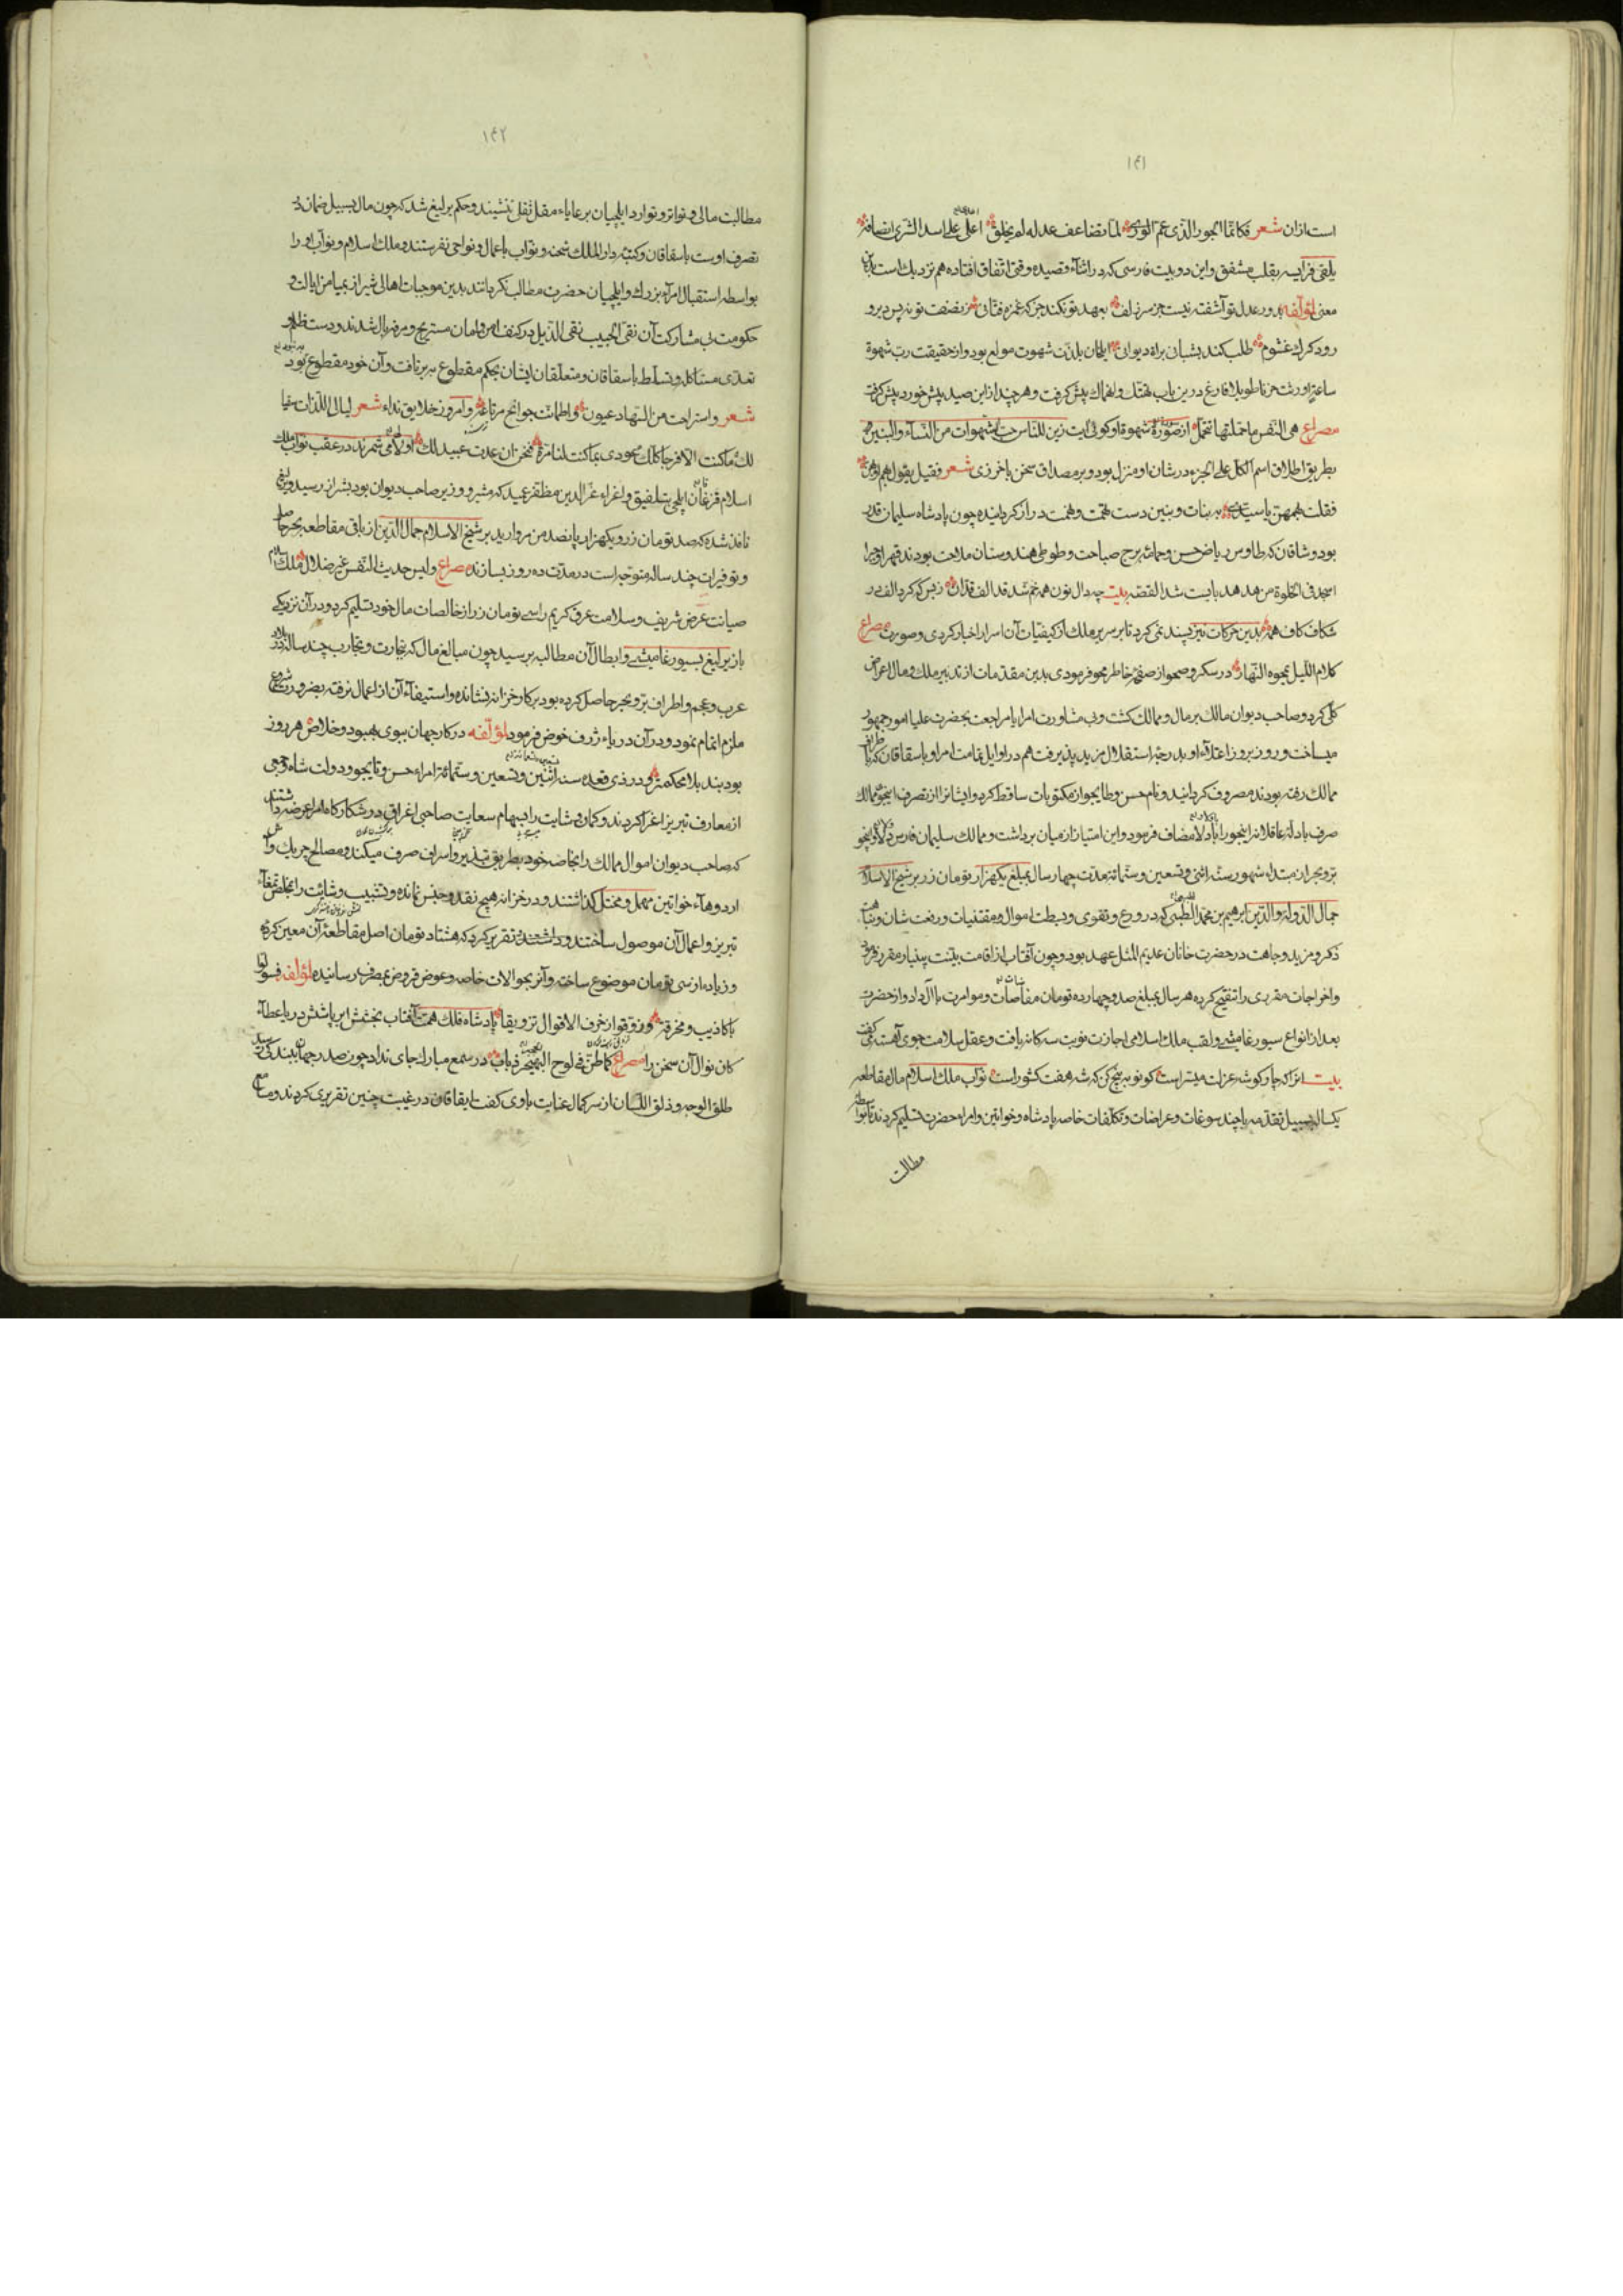 ۱۴۱
است ازان شعر فکانما الجور الذی عم الوری لما تضاعف عدله لم یخلق اعلی علی اسد الشری انصافه
یلقی فرایسه بقلب مشفق و این دو بیت فارسی که در اثناء قصیده وقتی اتفاق افتاده هم نزدیک است بدین
معنی لمؤلفه بدور عدل تو آشفته نیست جز سر زلف بعهد تو نکند جز که غمزه فتانی ز نصفت تو نه پس دیر و
رود که گرگ غشوم طلب کند بشبان براه دیوانی ایلخان بلذت شهوت مولع بود و از حقیقت رب شهوة
ساعة اورثت حزنا طویلا فارغ درین باب تهتک و انهماک پیش گرفت و هر چند ازین صید پیش خورد بیش گرفت
مصراع هی النفس ما حملتها تتحمل از صورة شهوة او گوئی آیت زین للناس حب الشهوات من النساء و البنین
بطریق اطلاق اسم الکل علی الجزء در شان او منزل بود و بر مصداق سخن باخرزی شعر فقیل یقول هم
فقلت بهم بهن یا سیدی به بنات و بنین دست همت و نهمت دراز گردانیده چون پادشاه سلیمان قدر
بود و شاقان که طاوس ریاض حسن و حمائم برج صباحت و طوطی هندوستان ملاحت بودند
اسجد فی الخلوة من هدهد بایست شد القصه بیت چه دال نون همه خم شد قد الف قدان ز بس که کرد الف در
شکاف کاف همه بدین حرکات نیز پسند نمی کرد تا بر سریر ملک از کیفیات آن اسرار اخبار کردی و صورت مصراع
کلام اللیل یمحوه النهار در سکر و صحو از صفحه خاطر محو فرمودی بدین مقدمات از تدبیر ملک و مال اعراض
کلی کرد و صاحب دیوان مالک بر مال و ممالک گشت و بی مشاورت امرا یا مراجعت بحضرت علیا امور جمهور
میساخت و روز بروز اعتلاء او بدرجه استقلال مزید پذیرفت هم در اوایل تمامت امرا و باسقاقان که باطراف
ممالک رفته بودند مصروف گردانید و نام حسن و طایجو از مکتوبات ساقط کرد و ایشانرا از تصرف اینجوء ممالک
صرف باد لة عاقلانه اینجو را با دلا مضاف فرمود و این امتیاز از میان برداشت و ممالک سلیمان فارس دلا و اینجو
بر و بحر از مبتداء شهور سنه اثنی و تسعین و ستمائة مدت چهار سال بمبلغ یکهزار تومان زر بر شیخ الاسلام
جمال الدولة و الدین ابرهیم بن محمد الطیبی که در ورع و تقوی و بسطت اموال و مقتنیات و رفعت شان و نباهت
ذکر و مزید وجاهت در حضرت خانان عدیم المثل عهد بود و چون آفتاب از اقامت بینت بی نیاز مقرر فرمود
و اخراجات مقرری را تنقیح کرده هر سال بمبلغ صد و چهارده تومان مفاصات و موامرت با آل داد و از حضرت
بعد از انواع سیورغامیشی و لقب ملک اسلامی اجازت نوبت سه گانه یافت و عقل سلامت جوی آهسته می گفت
بیت انرا که جار گوشه عزلت میسر است گو نوبه پنج کن که شه هفت کشور است نواب ملک اسلام مال مقاطعه
یکساله بسبیل تقدمه با چند سوغات و عراضات و تکلفات خاصه پادشاه و خواتین و امراء حضرت تسلیم کردند تا بواسطه
مطالبت
۱۴۲
مطالبت مالی و تواتر و توارد ایلچیان بر عایاء مقل ثقل ننشیند و حکم یرلیغ شد که چون مال بسبیل ضمان در
تصرف اوست باسقاقان و کتبه دار الملک شحنه و نواب باعمال و نواحی نفرستند و ملک اسلام و نواب او را
بواسطه استقبال امراء بزرک و ایلچیان حضرت مطالب نگردانند بدین موجبات اهالی شیراز بمیامن ایالت و
حکومت بی مشارکت آن نقی الجیب تقی الذیل در کنف امن و امان مستریح و مرفه بال شدند و دست ظلم و
تعدی مستاکله و تسلط باسقاقان و متعلقان ایشان بحکم مقطوع بر تافت و آن خود مقطوع بود
شعر و استراحت من السهاد عیون و اطمانت جوانح مرتاعة و امروز خلایق نداء شعر لیالی اللذات سقیا
لک ما کنت الا فرحا کلک عودی بما کنت لنا مرة فنحن ان عدت عبید لک می شمرند در عقب نواب ملک
اسلام قزغان ایلچی بتلفیق و اغراء عز الدین مظفر عمید که مشیر و وزیر صاحب دیوان بود بشیراز رسید و یرلیغ
نافذ شده که صد تومان زر و یکهزار پانصد من مروارید بر شیخ الاسلام جمال الدین از باقی مقاطعه بحر حاصل
و توفیرات چند ساله متوجه است در مدت ده روز بسازند مصراع و لیس حدیث النفس غیر ضلال ملک اسلام
صیانت عرض شریف و سلامت عرق کریم را سی تومان زر از خالصات مال خود تسلیم کرد و در آن نزدیکی
باز یرلیغ بسیورغامیشی و ابطال آن مطالبه برسید چون مبالغ مال که بتجارت و تجارب چند ساله در
عرب و عجم و اطراف بر و بحر حاصل کرده بود بر کار خزانه نشانده و استیفاء آن از اعمال نرفته بضرورت شروع
ملزم اتمام نمود و در آن دریاء ژرف خوض فرمود لمؤلفه در کار جهان بوی بهبود و خلاص هر روز
بود بند بلا محکمتر و در ذی قعده سنه اثنین و تسعین و ستمائة امراء حسن و تایجو و دولت شاه و جمی
از معارف تبریز اغرا کردند و کمان وشایت را بسهام سعایت صاحبی اغراق و در شکارگاه امرا عرضه داشتند
که صاحب دیوان اموال ممالک را بخاصه خود بطریق تبذیر و اسراف صرف میکند و مصالح چریک و آش
اردوهاء خواتین مهمل و مختل گذاشتند و در خزانه هیچ نقد و جنس نمانده و تسبیب وشایت را تمغاء
تبریز و اعمال آن موصول ساختند و تقریر کرد که هشتاد تومان اصل مقاطعه آن معین کرده
و زیاده از سی تومان موضوع ساخته و آنرا بحوالات خاصه و عوض قروض بمصرف رسانیده لمؤلفه فسولوا
باکاذیب و مخرقة و زوقوا زخرف الاقوال تزویقا پادشاه فلک همت آفتاب بخشش ابر پاشش دریا عطاء
کان نوال آن سخن را مصراع کما طن فی لوح الهجیر ذباب در سمع مبارک جای نداد چون صدر جهان ببندگی رسید
طلق الوجه و ذلق اللسان از سر کمال عنایت با وی گفت ایقاقان در غیبت چنین تقریری کردند و ما